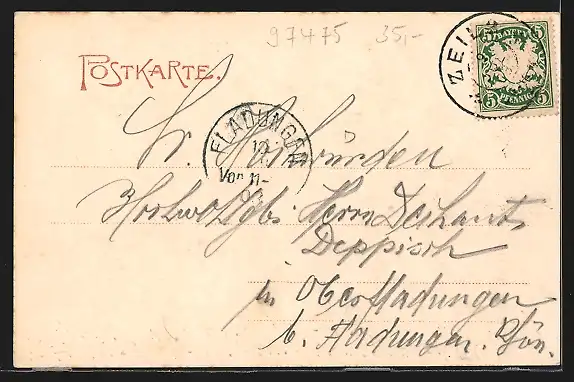 97475 35,-
POSTKARTE.
ZEIL
5 BAYERN 5
5 PFENNIG 5
FLADUNGEN
Vor. 11-
Sr. Hochwürden
Hochwohlgb. Herrn Dechant
Deppisch
in Oberfladungen
b. Fladungen. Rhön.